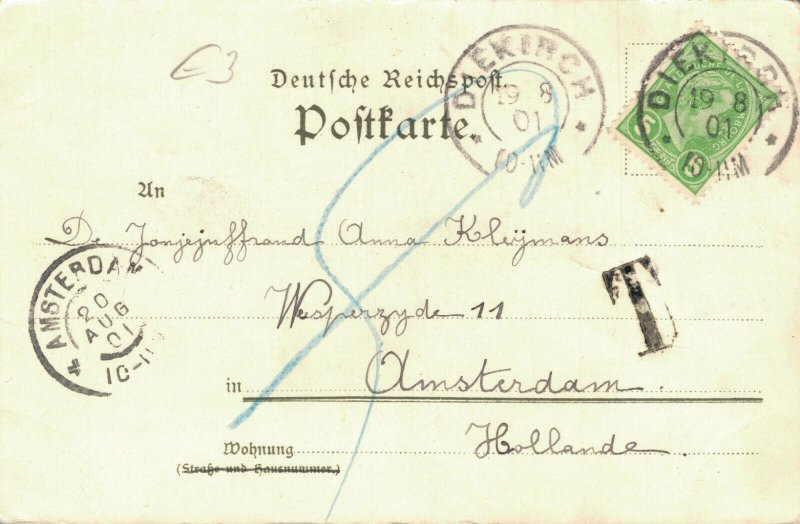 E3
Deutsche Reichspost.
Postkarte.
DIEKIRCH
19 8
01
10-11M
DIEKIRCH
19 8
01
10-11M
5
5
An
De Jonjejuffraud Anna Kleijmans
AMSTERDAM
20
AUG
01
10-11
Wesperzyde 11
T
in Amsterdam.
Wohnung Hollande.
(Straße und Hausnummer.)